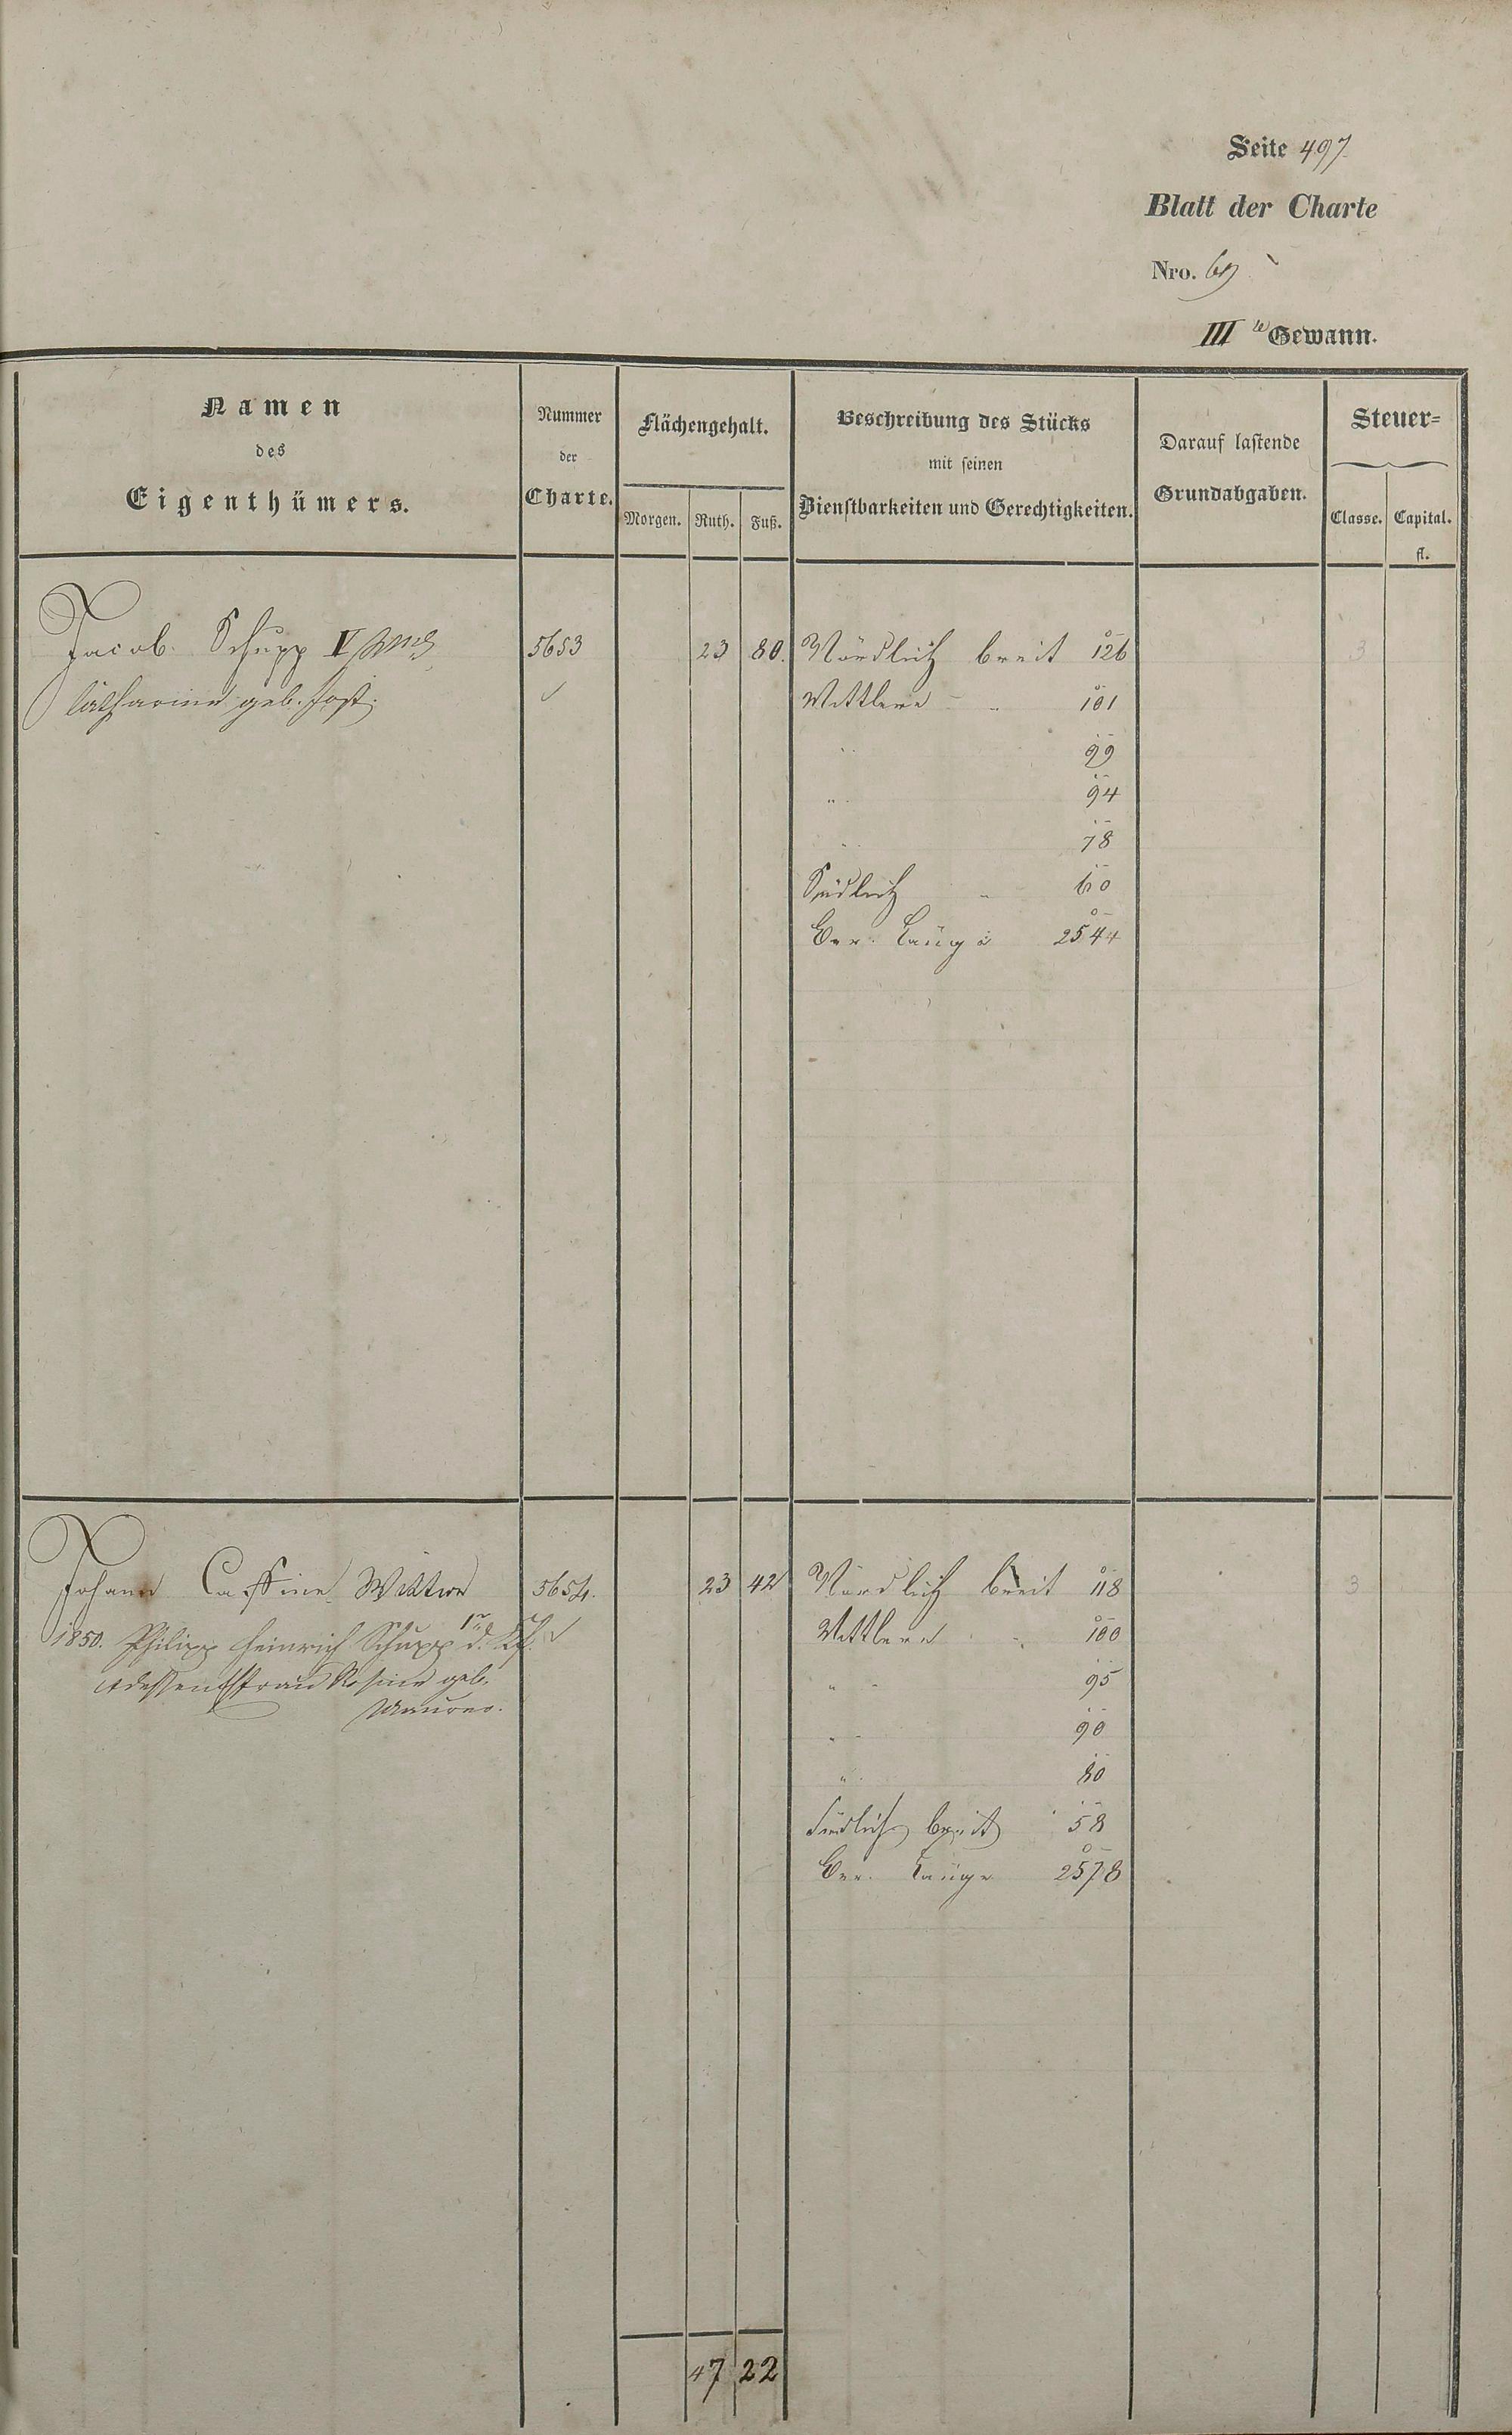 Seite 497
Blatt der Charte
Nro. 69
III te Gewann.
Namen
des
Eigenthümers.
Nummer
der
Charte.
Flächengehalt.
Morgen. Ruth. Fuß.
Beschreibung des Stücks
mit seinen
Dienstbarkeiten und Gerechtigkeiten.
Darauf lastende
Grundabgaben.
Steuer-
Classe. Capital.
fl.
Jacob Schupp V 5653 23 80. Nördlich breit 126 3
Catharina geb. Jost. ✓ Mittlere - „ 101
„ 99
„ 94
„ 78
Südlich „ 60
Ver. Länge 2544
Johann Cassine Wittwe 5654. 23 42 Nördlich breit 118 3
1850. Philipp Heinrich Schupp 1r d. ✓ Mittlere „ 100
dessen Ehefrau Rosine geb. „ 95
Maurer.
„ 90
„ 80
Südlich breit 58
Ver. Länge 2578
47 22